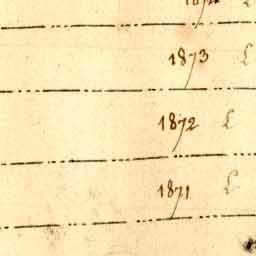 1873 L
1872 L
1871 L